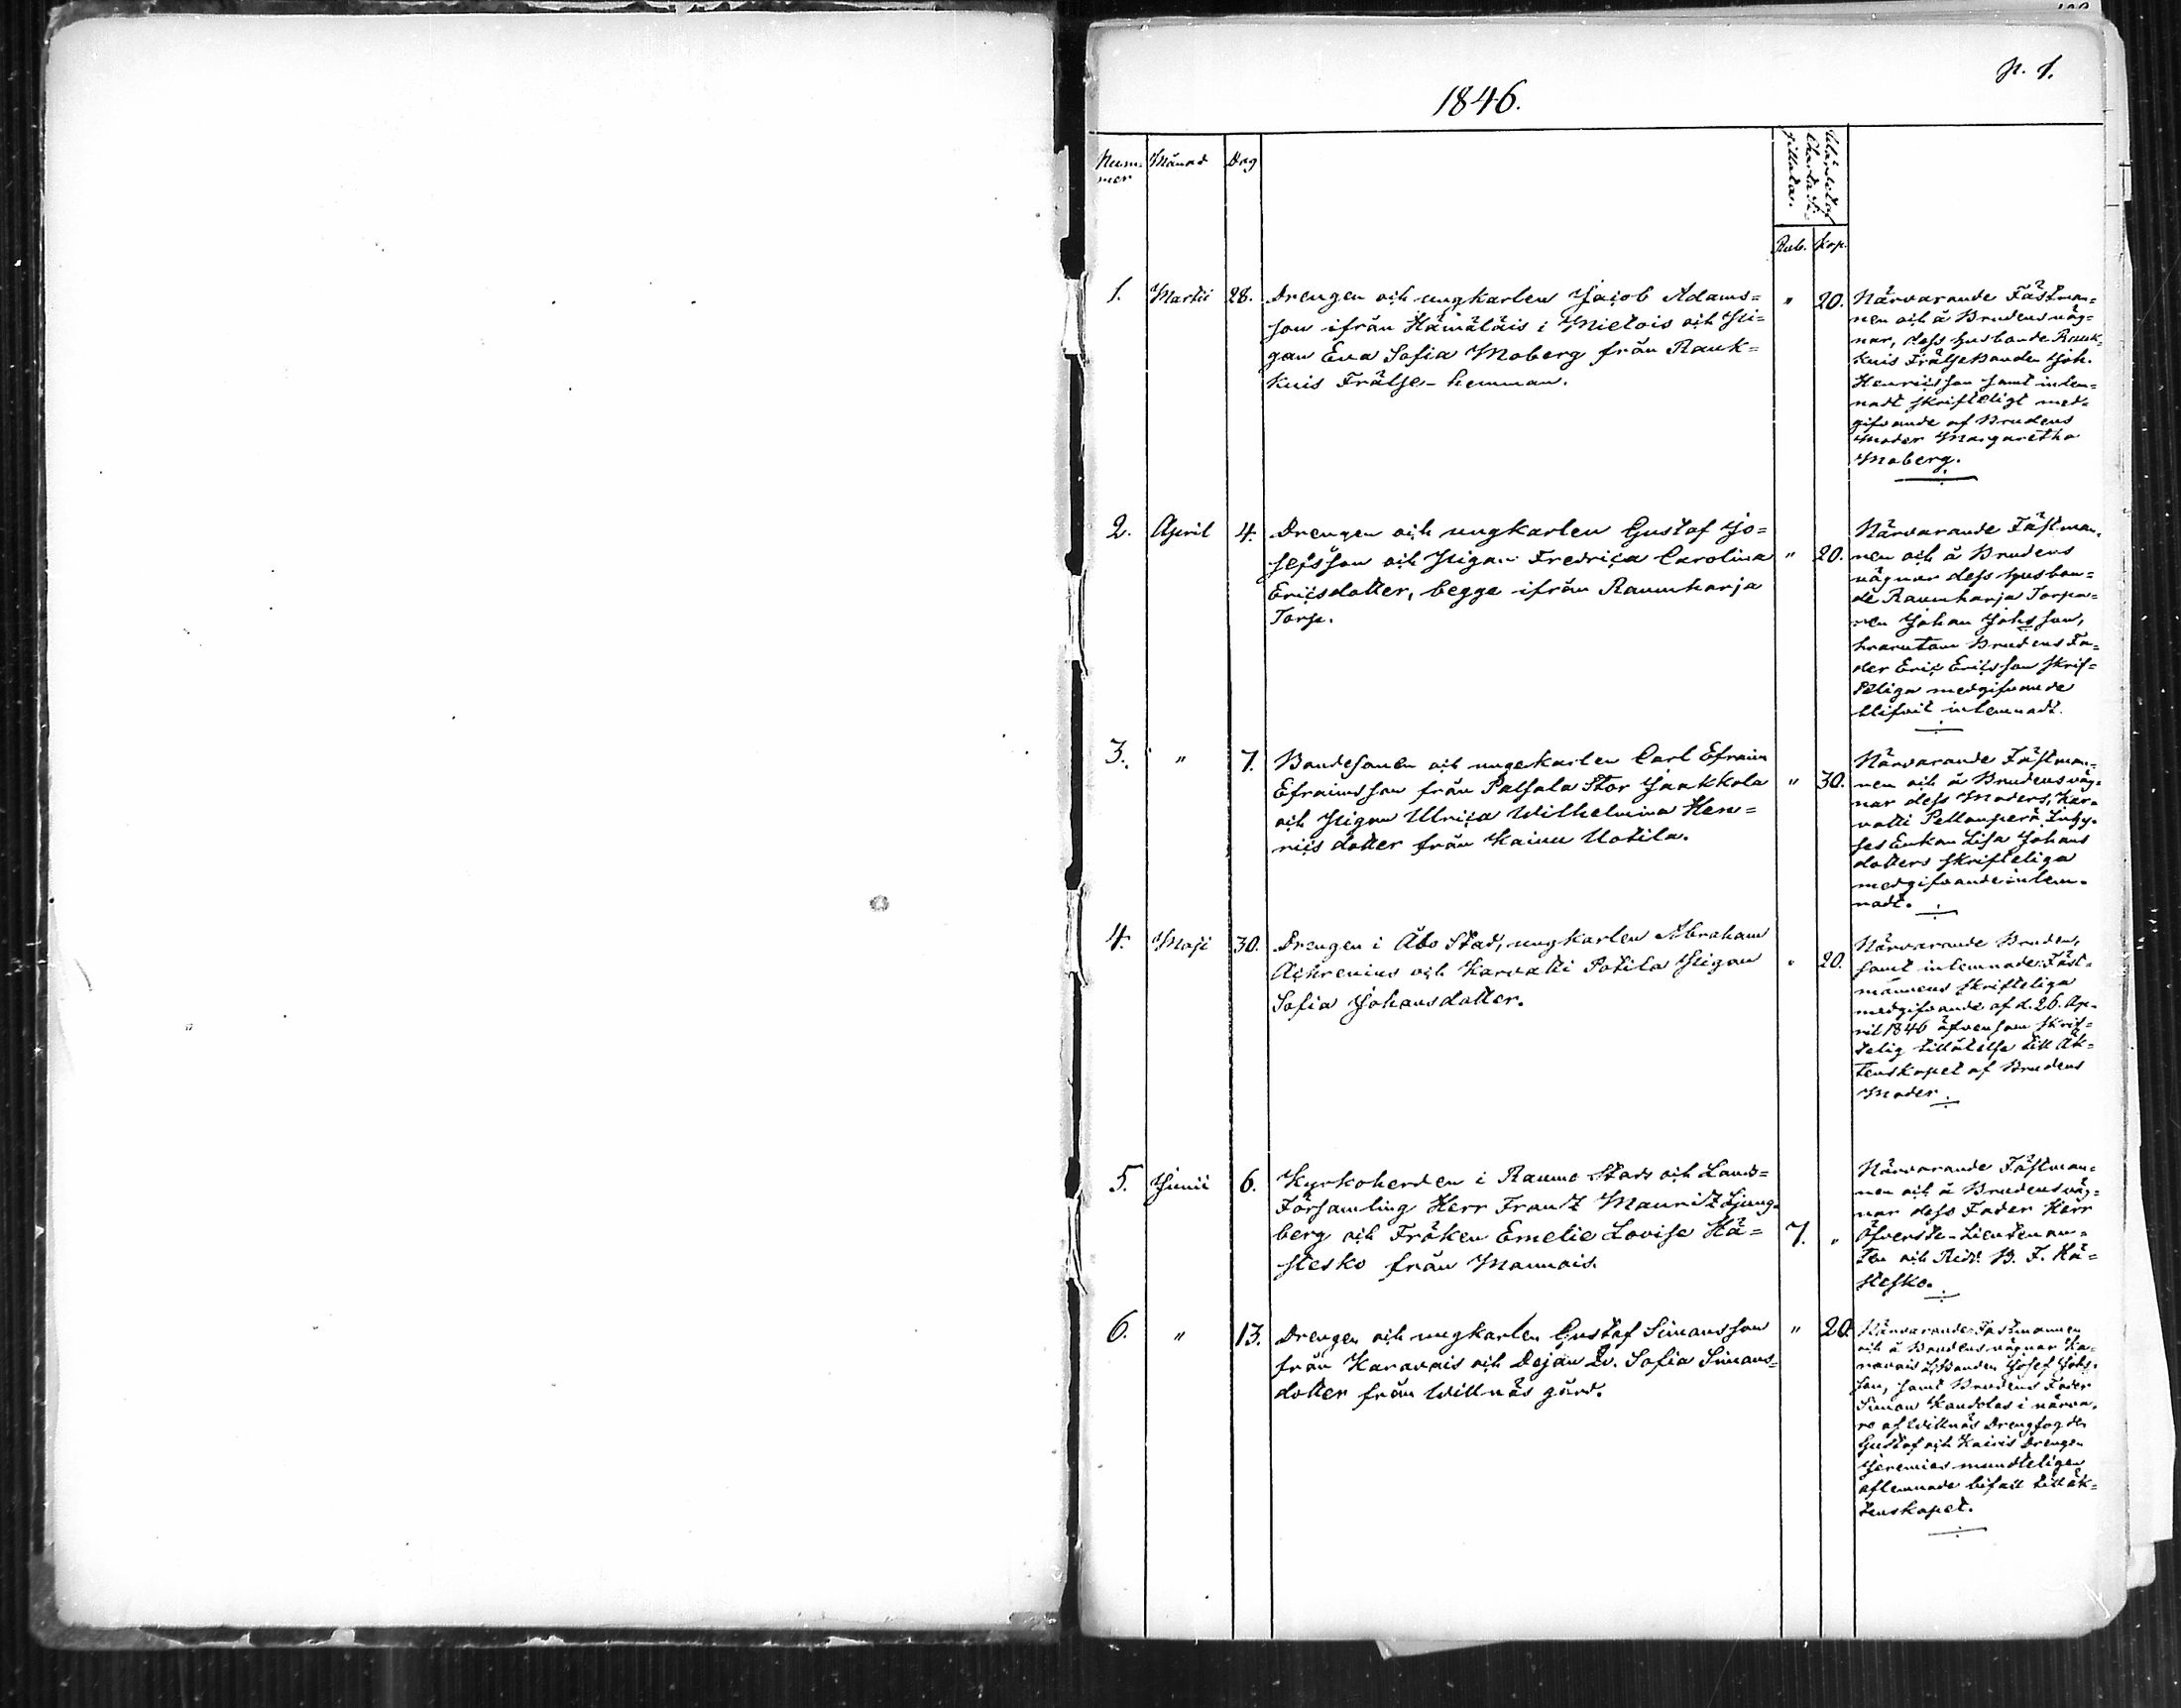 p. 1.
1846.
Num-
mer
Månad
Dag
Rub.
Kop.
1. Martii 28. Drengen och ungkarlen Jacob Adams=
son ifrån Hämäläis i Mietois och Pi=
gan Eva Sofia Moberg från Rauk=
kuis Frälse-hemman.
" 20.
Närvarande Fästman=
nen och å Brudens väg=
nar, dess husbonde Rauk=
kuis Frälsebonden Joh.
Henricsson samt inlem=
nadt skrifteligt med=
gifvande af Brudens
Moder Margaretha
Moberg.
2. April 4. Drengen och ungkarlen Gustaf Jo=
sefsson och Pigan Fredrica Carolina
Ericsdotter, begge ifrån Raumharja
Torp.
" 20.
Närvarande Fästman=
nen och å Brudens
vägnar dess husbon=
de Raumharja Torpa=
ren Johan Johsson,
hvarutom Brudens Fa=
der Eric Ericsson skrif=
teliga medgifvande
blifvit inlemnadt.
3. " 7. Bondesonen och ungekarlen Carl Efraim
Efraimsson från Palsala Stor Jaakkola
och Pigan Ulrica Wilhelmina Hen=
rics dotter från Kainu Uotila.
" 30.
Närvarande Fästman=
nen och å Brudens väg=
nar dess Moders, Kar=
vatti Pellanperä
Enkan Lisa Johans
dotters skrifteliga
medgifvande inlem=
nadt.
4. Maji 30. Drengen i Åbo Stad, ungkarlen Abraham
Achrenius och Karvatti Potila Pigan
Sofia Johansdotter.
" 20.
Närvarande Bruden,
samt inlemnade Fäst=
mannens skrifteliga
medgifvande af d. 26. Ap=
ril 1846 äfvensom skrif=
telig tillåtelse till Äk=
tenskapet af Brudens
Moder.
5. Junii 6. Kyrkoherden i Raumo Stads och Lands=
Församling Herr Frantz Mauritz Ljung=
berg och Fröken Emelie Lovise Hä=
stesko från Mannais.
7. "
Närvarande Fästman=
nen och å Brudens väg=
nar dess Fader Herr
Öfverste-Lieutenan=
ten och Ridd. B. F. Hä=
stesko.
6. " 13. Drengen och ungkarlen Gustaf Simonsson
från Karavais och Dejan Sofia Simons=
dotter från Willnäs gård.
" 20.
Närvarande Fästmannen
och å Brudens vägnar Ka=
ravais Josef Johs=
son, samt Brudens Fader
Simon i närva=
ro af Willnäs Drengfogden
Gustaf och Kairis Drengen
Jeremias mundteligen
aflemnade bifall till äk=
tenskapet.